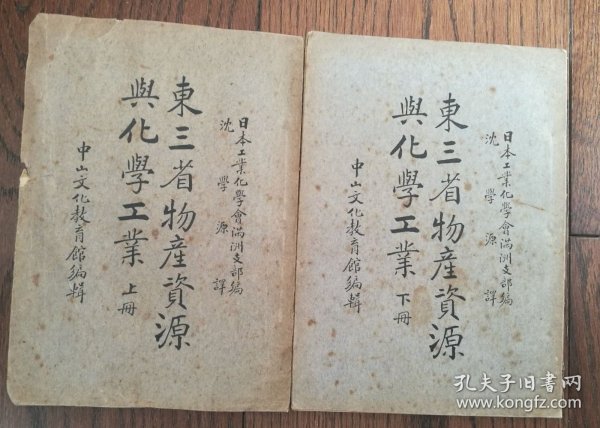 日本工業化學會滿洲支部編
沈學源譯
東三省物產資源
與化學工業 上冊
中山文化教育館編輯
日本工業化學會滿洲支部編
沈學源譯
東三省物產資源
與化學工業 下冊
中山文化教育館編輯
孔夫子旧书网
www.kongfz.com